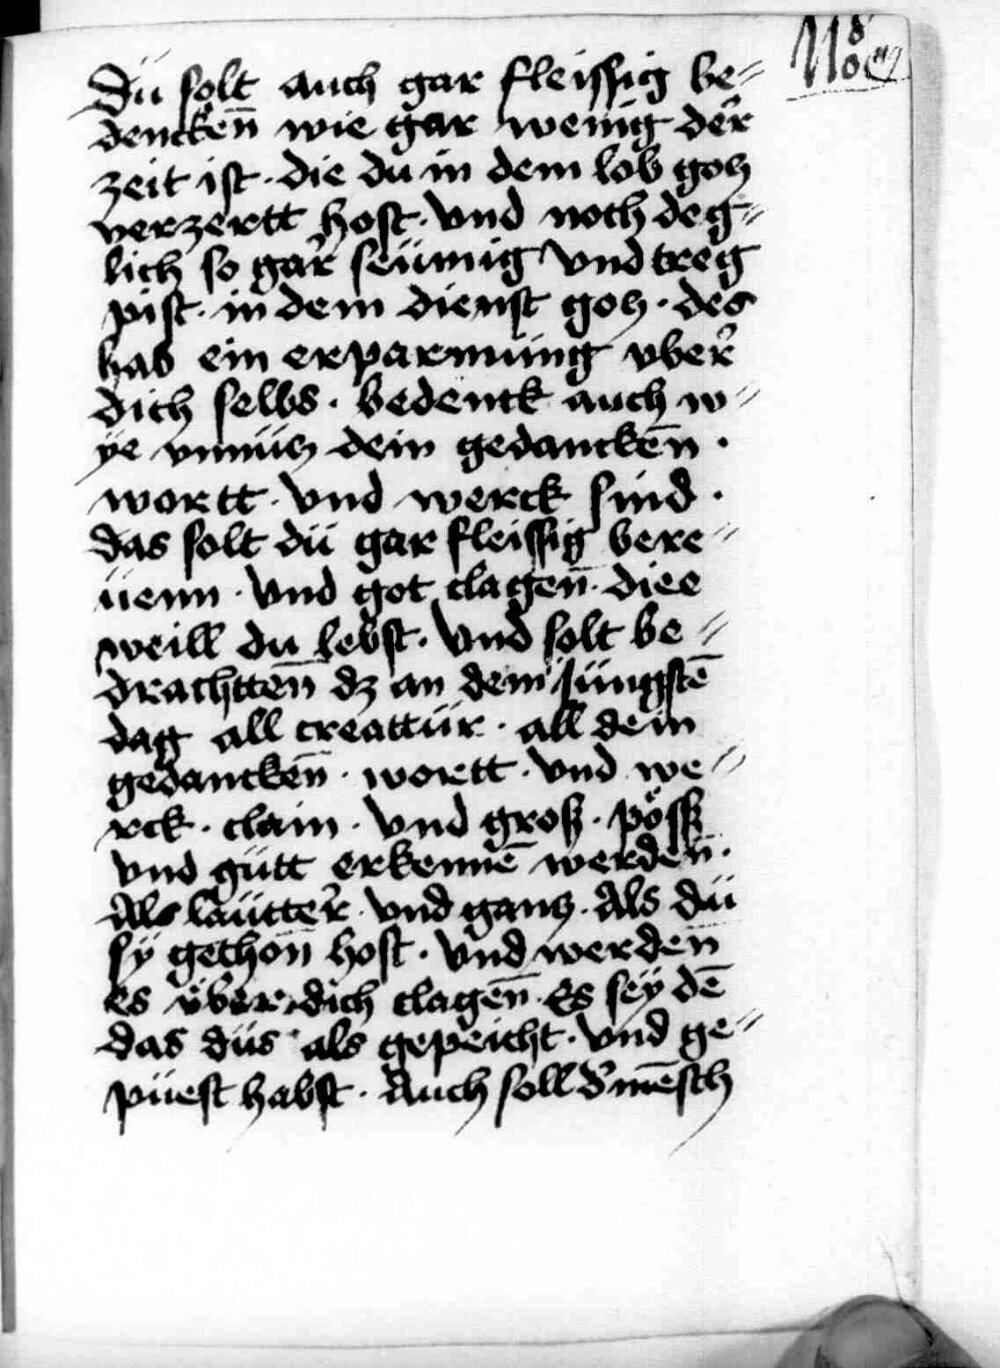 Dü solt auch gar fleissig be〃
dencken̄ wie gar wenig der
zeit ist · die du in dem lob gotz
verzertt host · vnd noch deg〃
lich so gar seümig vnd treg
pist · in dem dienst gotz · des
hab ein erparmüng vber
dich selbs · bedenck auch w〃
ÿe vnnücz dein gedancken̄ ·
wortt · vnd werck sind ·
das solt dü gar fleissig bere〃
üenn · vnd got clagen̄ · diee
weill du lebst · vnd solt be〃
drachtten̄ dz an dem Jüngstē
dag all creattür · all dein
gedancken̄ · wortt · vnd we〃
rck · clain · vnd grosz · pössz
vnd gütt erkennē werden̄ ·
Als laütter · vnd gantz · Als dü
sÿ gethon̄ host · vnd werden̄
es über dich clagen̄ · Es seÿ dē
das düs als gepeicht · vnd ge〃
püest habst · Auch soll d' mēsch